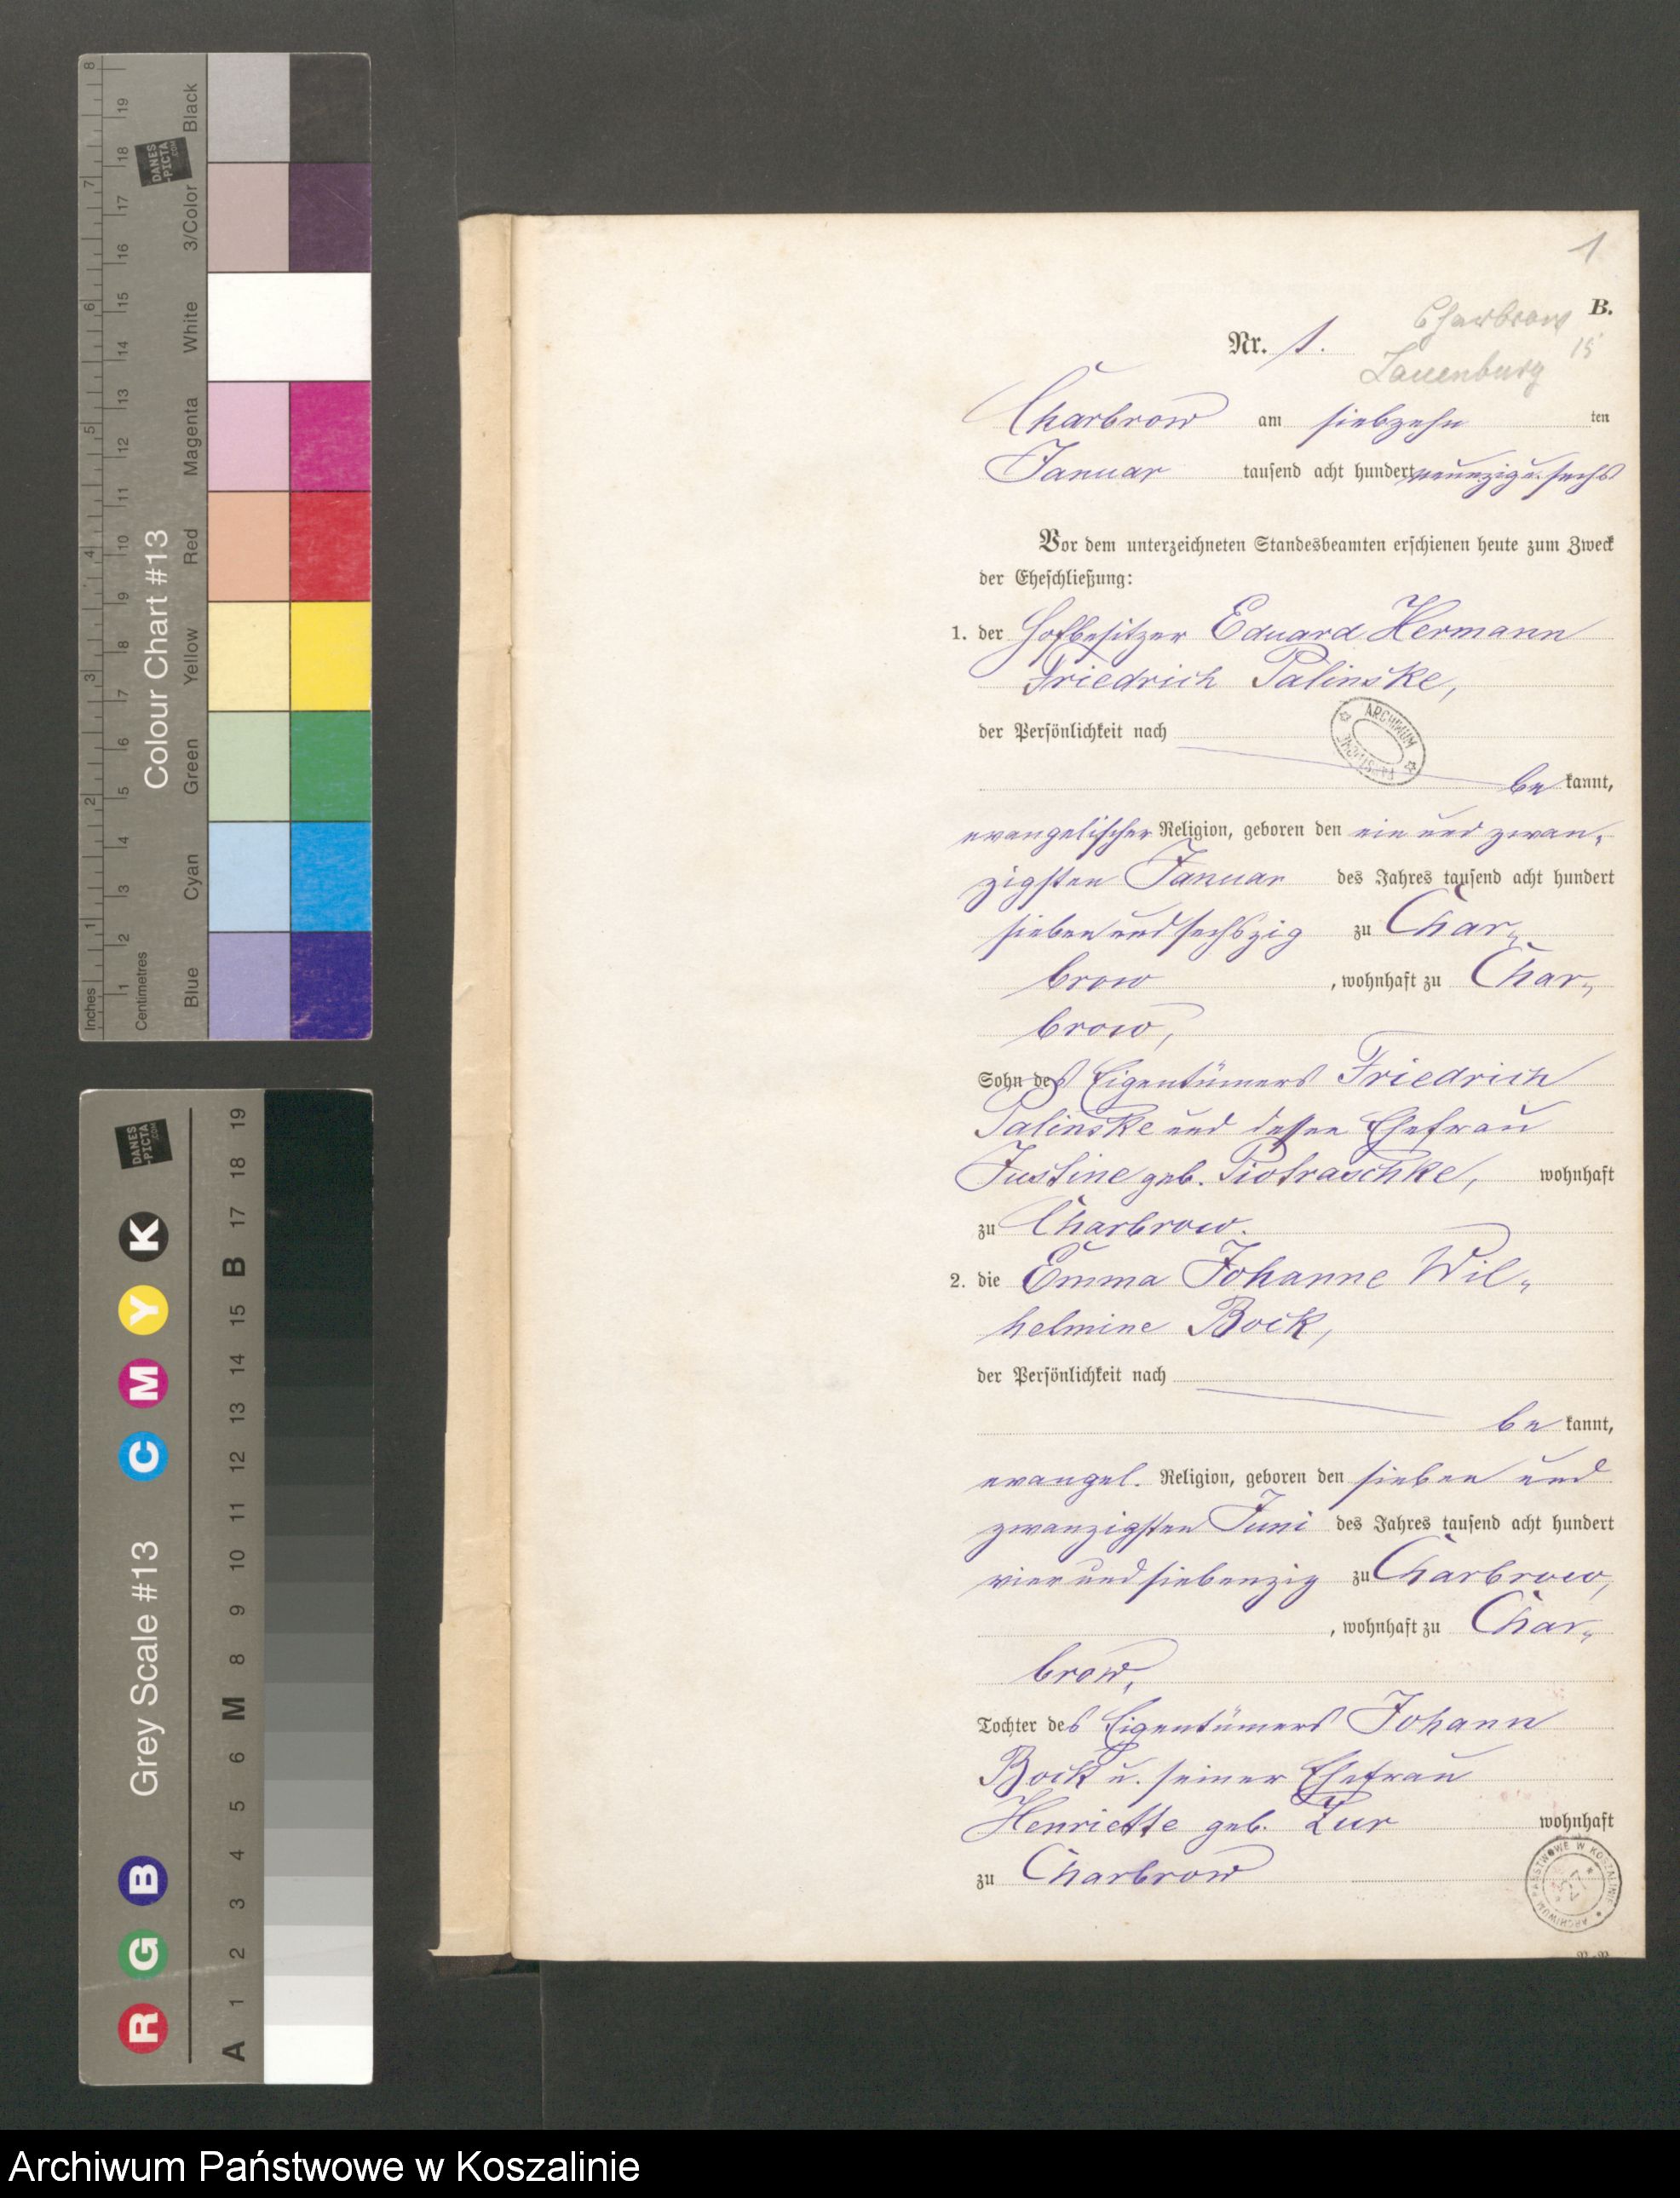 8
7
6
5
4
3
2
1
Inches
19
18
17
16
15
14
13
12
11
10
9
8
7
6
5
4
3
2
1
Centimetres
DANES
-PICTA
.COM
Colour Chart #13
Black
3/Color
White
Magenta
Red
Yellow
Green
Cyan
Blue
DANES
-PICTA
.COM
Grey Scale #13
K
Y
M
C
B
G
R
19
18
17
B
15
14
13
12
11
10
9
8
M
6
5
4
3
2
1
A
1
B.
Charbrow
15
Lauenburg
Nr. 1.
Charbrow am siebzehn ten
Januar tausend acht hundert neunzig u. sechs
Vor dem unterzeichneten Standesbeamten erschienen heute zum Zweck
der Eheschließung:
1. der Hofbesitzer Eduard Hermann
Friedrich Palinske,
der Persönlichkeit nach
ARCHIWUM
be kannt,
evangelischer Religion, geboren den ein und zwan-
zigsten Januar des Jahres tausend acht hundert
sieben und sechszig zu Char-
brow , wohnhaft zu Char-
brow,
Sohn des Eigentümers Friedrich
Palinske und dessen Ehefrau
Justine geb. Piotraschke, wohnhaft
zu Charbrow.
2. die Emma Johanne Wil-
helmine Bock,
der Persönlichkeit nach
be kannt,
evangel. Religion, geboren den sieben und
zwanzigsten Juni des Jahres tausend acht hundert
vier und siebenzig zu Charbrow,
, wohnhaft zu Char-
brow,
Tochter des Eigentümers Johann
Bock u. seiner Ehefrau
Henriette geb. Zur wohnhaft
zu Charbrow
ARCHIWUM PAŃSTWOWE W KOSZALINIE
27
Archiwum Państwowe w Koszalinie